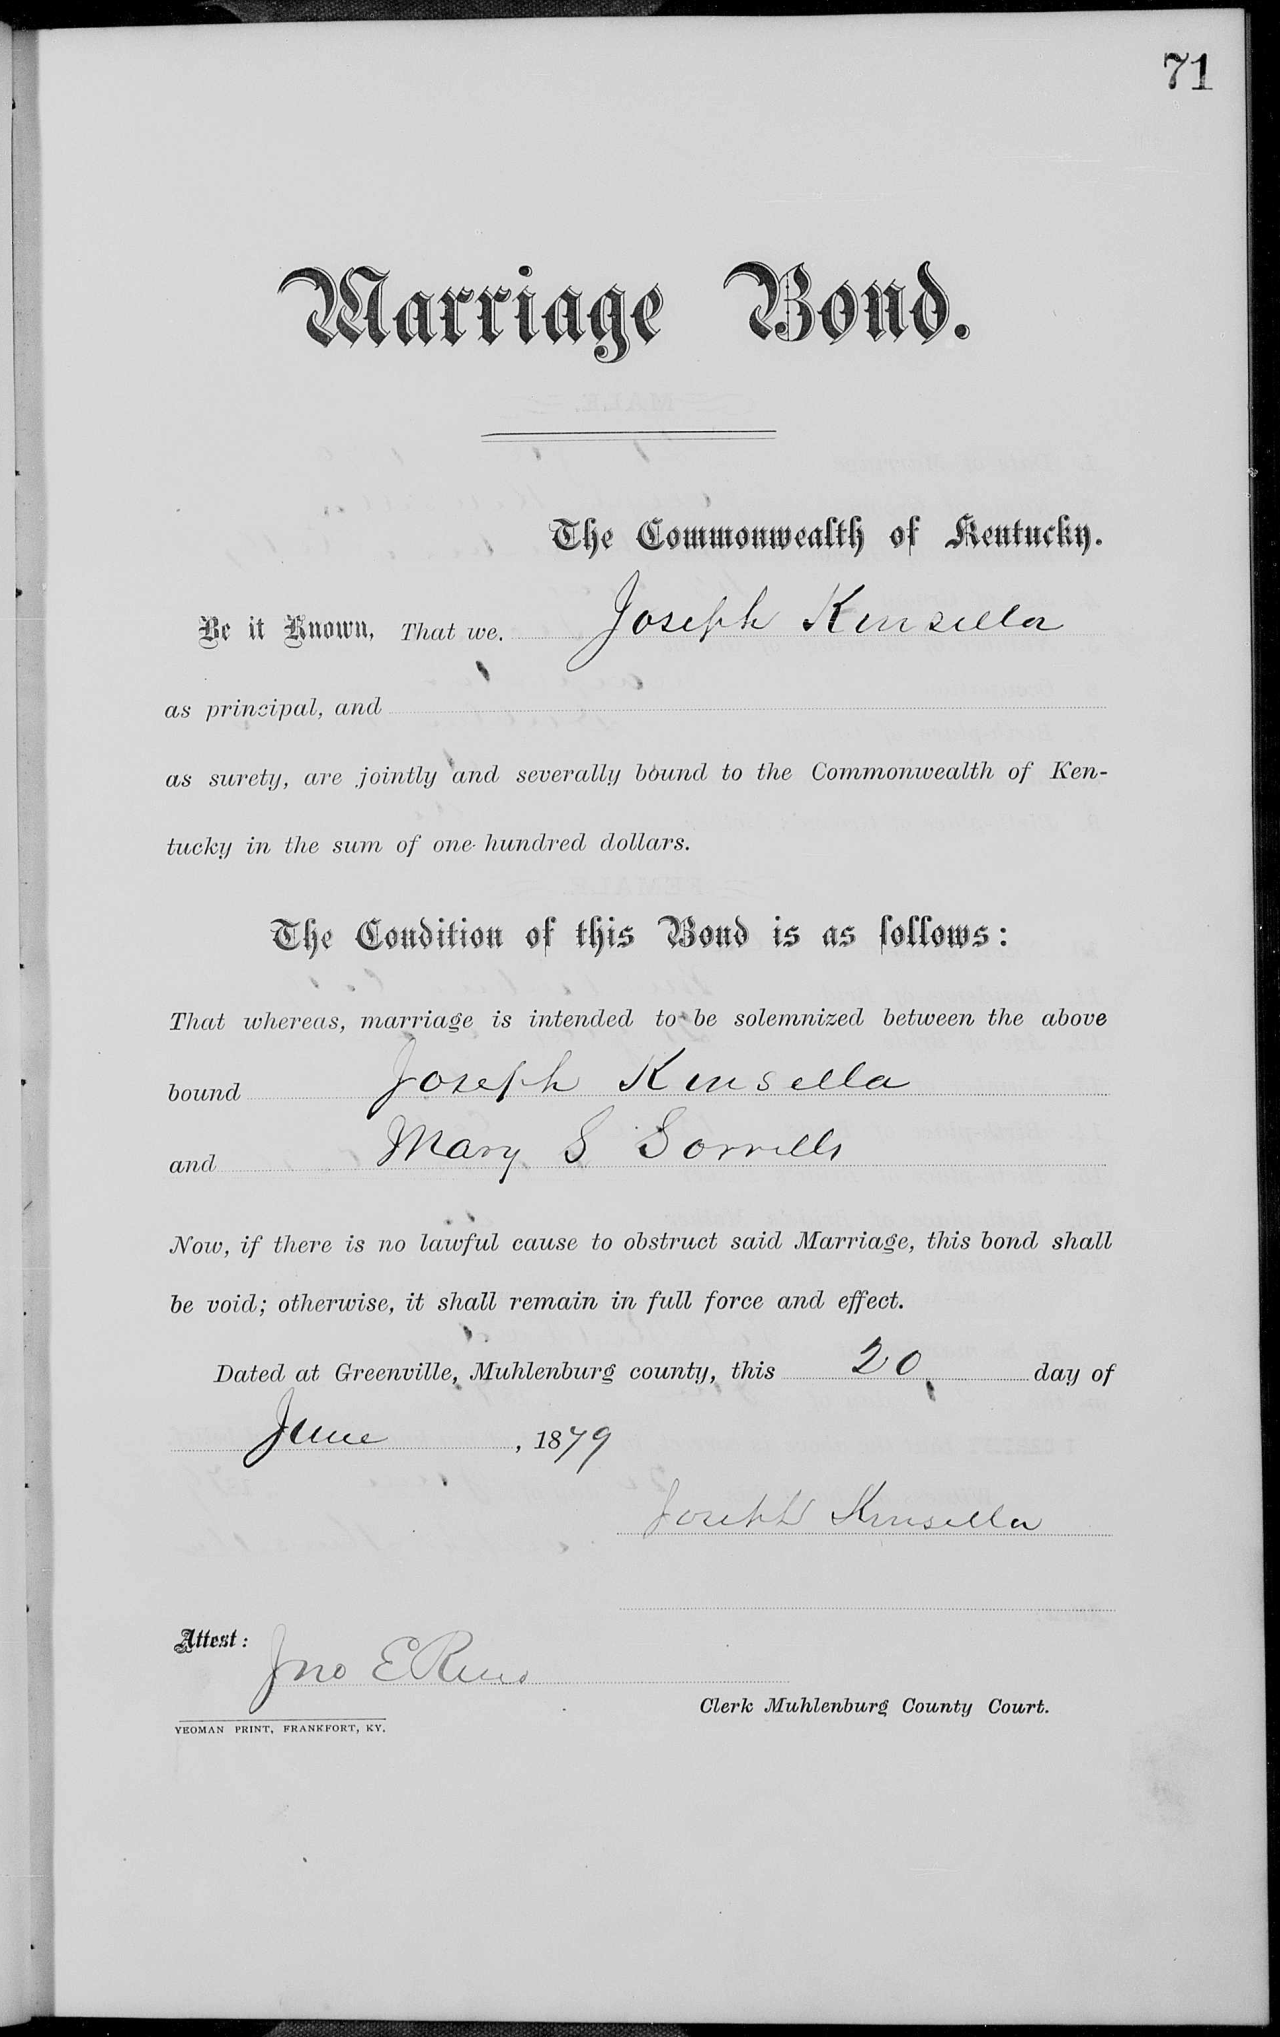 71
Marriage Bond.
The Commonwealth of Kentucky.
Be it Known, That we. Joseph Kinsella
as principal, and
as surety, are jointly and severally bound to the Commonwealth of Ken-
tucky in the sum of one hundred dollars.
The Condition of this Bond is as follows:
That whereas, marriage is intended to be solemnized between the above
bound Joseph Kinsella
and Mary S Sorrells
Now, if there is no lawful cause to obstruct said Marriage, this bond shall
be void; otherwise, it shall remain in full force and effect.
Dated at Greenville, Muhlenburg county, this 20 day of
June, 1879
Joseph Kinsella
Attest:
Jno E Reno
Clerk Muhlenburg County Court.
YEOMAN PRINT, FRANKFORT, KY.